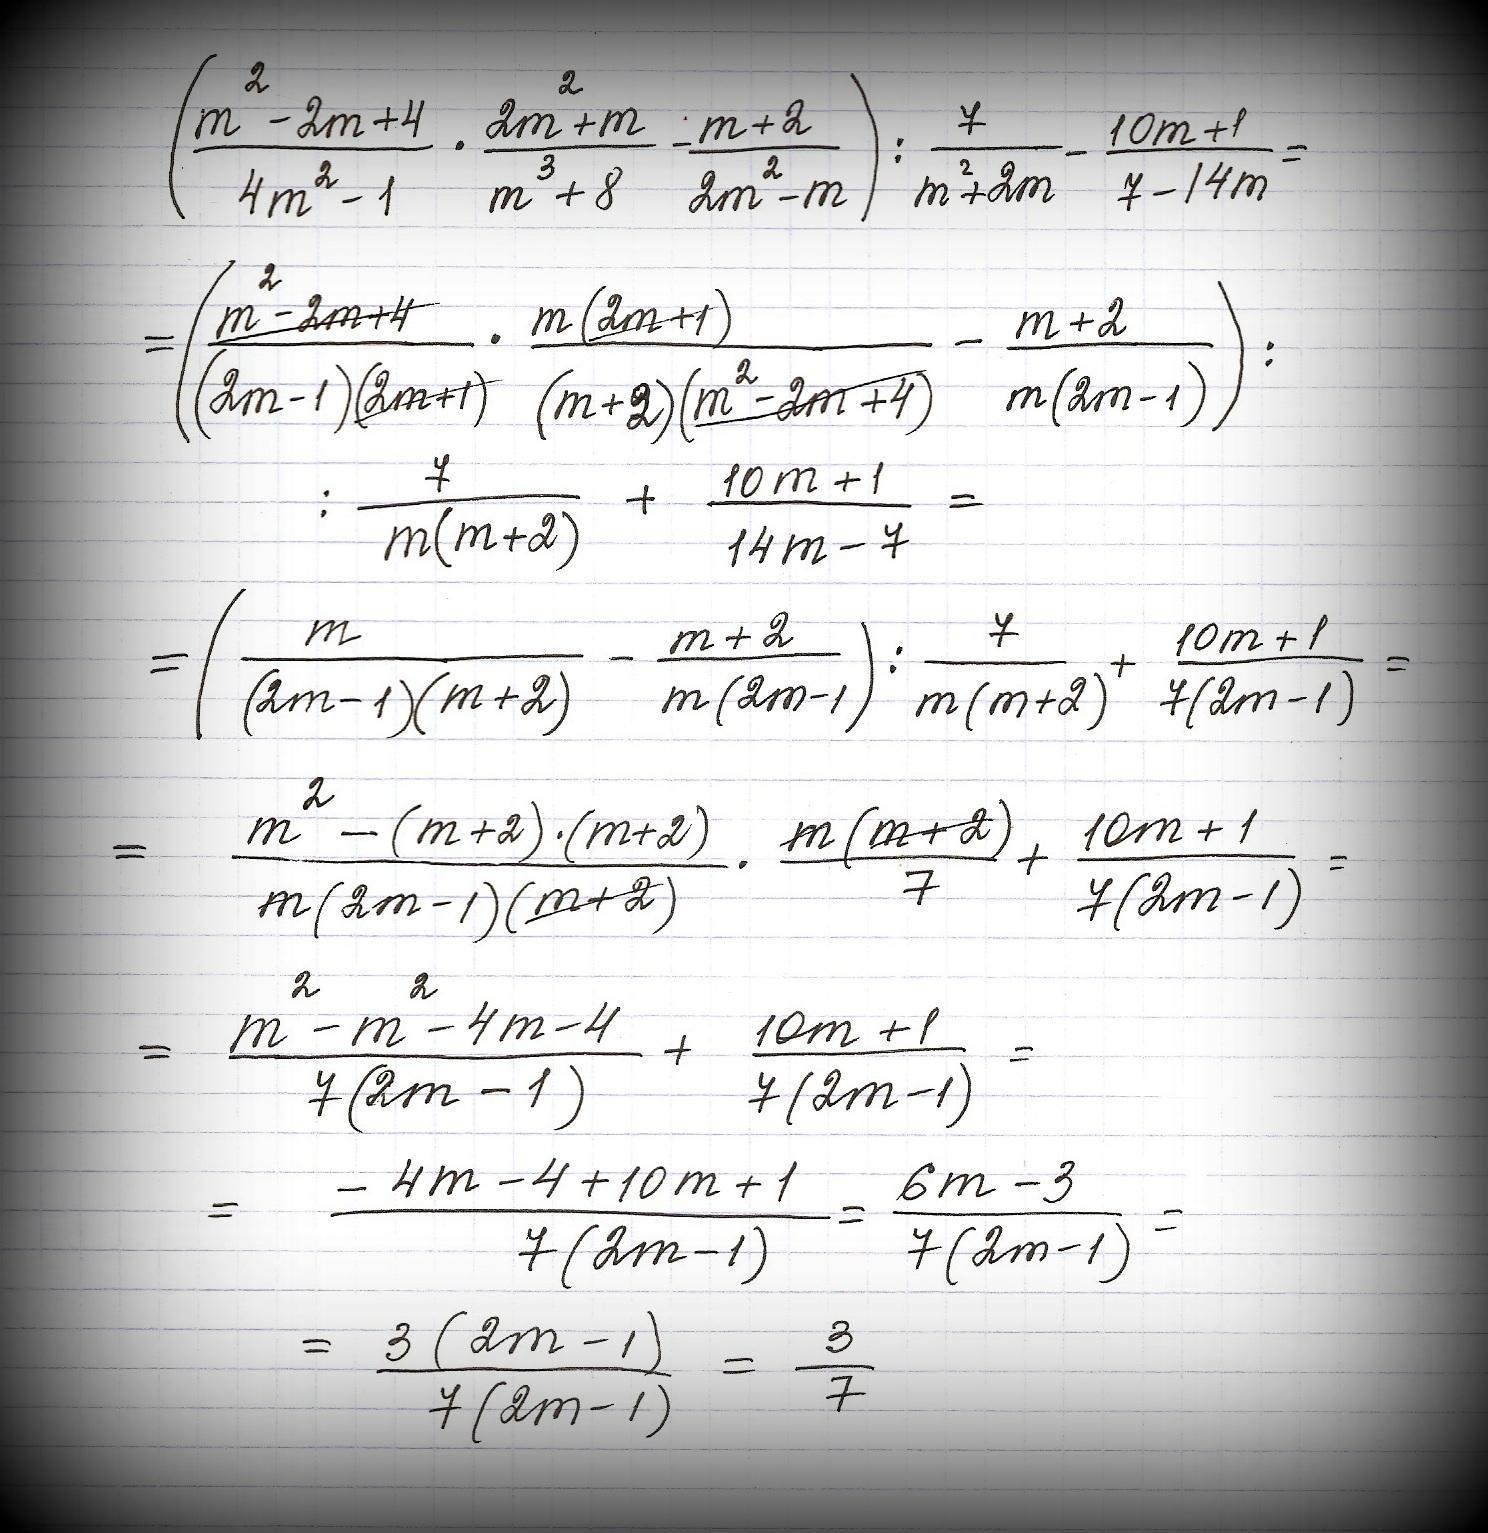 (m²-2m+4/4m²-1 · 2m²+m/m³+8 - m+2/2m²-m) : 7/m²+2m - 10m+1/7-14m =
= (m²-2m+4/(2m-1)(2m+1) · m(2m+1)/(m+2)(m²-2m+4) - m+2/m(2m-1)) :
: 7/m(m+2) + 10m+1/14m-7 =
= (m/(2m-1)(m+2) - m+2/m(2m-1) : 7/m(m+2) + 10m+1/7(2m-1) =
= m²-(m+2)·(m+2)/m(2m-1)(m+2) · m(m+2)/7 + 10m+1/7(2m-1) =
= m²-m²-4m-4/7(2m-1) + 10m+1/7(2m-1) =
= -4m-4+10m+1/7(2m-1) = 6m-3/7(2m-1) =
= 3(2m-1)/7(2m-1) = 3/7